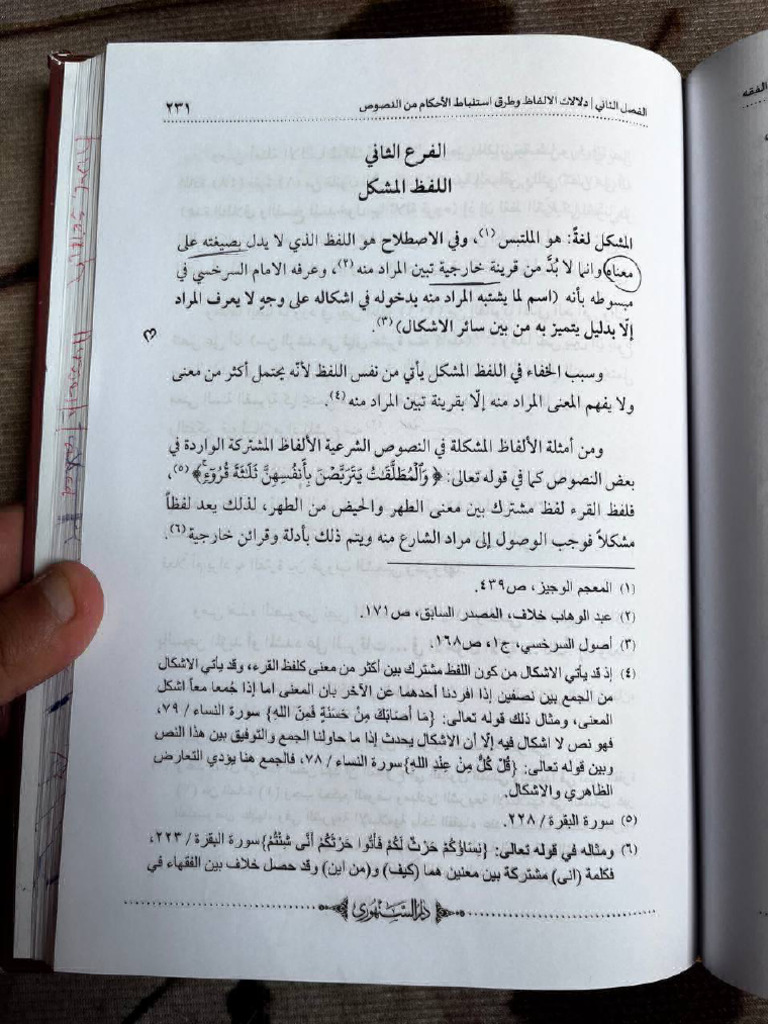 الفصل الثاني | دلالات الالفاظ وطرق استنباط الأحكام من النصوص ٢٣١
الفرع الثاني
اللفظ المشكل
المشكل لغةً: هو الملتبس (١)، وفي الاصطلاح هو اللفظ الذي لا يدل بصيغته على
معناه وانما لا بُدَّ من قرينة خارجية تبين المراد منه (٢)، وعرفه الامام السرخسي في
مبسوطه بأنه (اسم لما يشتبه المراد منه بدخوله في اشكاله على وجهٍ لا يعرف المراد
إلّا بدليل يتميز به من بين سائر الاشكال) (٣).
وسبب الخفاء في اللفظ المشكل يأتي من نفس اللفظ لأنّه يحتمل أكثر من معنى
ولا يفهم المعنى المراد منه إلّا بقرينة تبين المراد منه (٤).
ومن أمثلة الألفاظ المشكلة في النصوص الشرعية الألفاظ المشتركة الواردة في
بعض النصوص كما في قوله تعالى: ﴿وَٱلْمُطَلَّقَٰتُ يَتَرَبَّصْنَ بِأَنفُسِهِنَّ ثَلَٰثَةَ قُرُوٓءٍ﴾ (٥)،
فلفظ القرء لفظ مشترك بين معنى الطهر والحيض من الطهر، لذلك يعد لفظاً
مشكلاً فوجب الوصول إلى مراد الشارع منه ويتم ذلك بأدلة وقرائن خارجية (٦).
(١) المعجم الوجيز، ص٤٣٩.
(٢) عبد الوهاب خلاف، المصدر السابق، ص١٧١.
(٣) أصول السرخسي، ج١، ص١٦٨.
(٤) إذ قد يأتي الاشكال من كون اللفظ مشترك بين أكثر من معنى كلفظ القرء، وقد يأتي الاشكال
من الجمع بين نصفين إذا افردنا أحدهما عن الآخر بان المعنى اما إذا جُمعا معاً اشكل
المعنى، ومثال ذلك قوله تعالى: {مَا أَصَابَكَ مِنْ حَسَنَةٍ فَمِنَ اللهِ} سورة النساء / ٧٩،
فهو نص لا اشكال فيه إلّا أن الاشكال يحدث إذا ما حاولنا الجمع والتوفيق بين هذا النص
وبين قوله تعالى: {قُلْ كُلٌّ مِنْ عِنْدِ اللهِ} سورة النساء / ٧٨، فالجمع هنا يؤدي التعارض
الظاهري والاشكال.
(٥) سورة البقرة / ٢٢٨.
(٦) ومثاله في قوله تعالى: {نِسَاؤُكُمْ حَرْثٌ لَكُمْ فَأْتُوا حَرْثَكُمْ أَنَّى شِئْتُمْ} سورة البقرة / ٢٢٣،
فكلمة (انى) مشتركة بين معنين هما (كيف) و(من اين) وقد حصل خلاف بين الفقهاء في
دار السنهوري